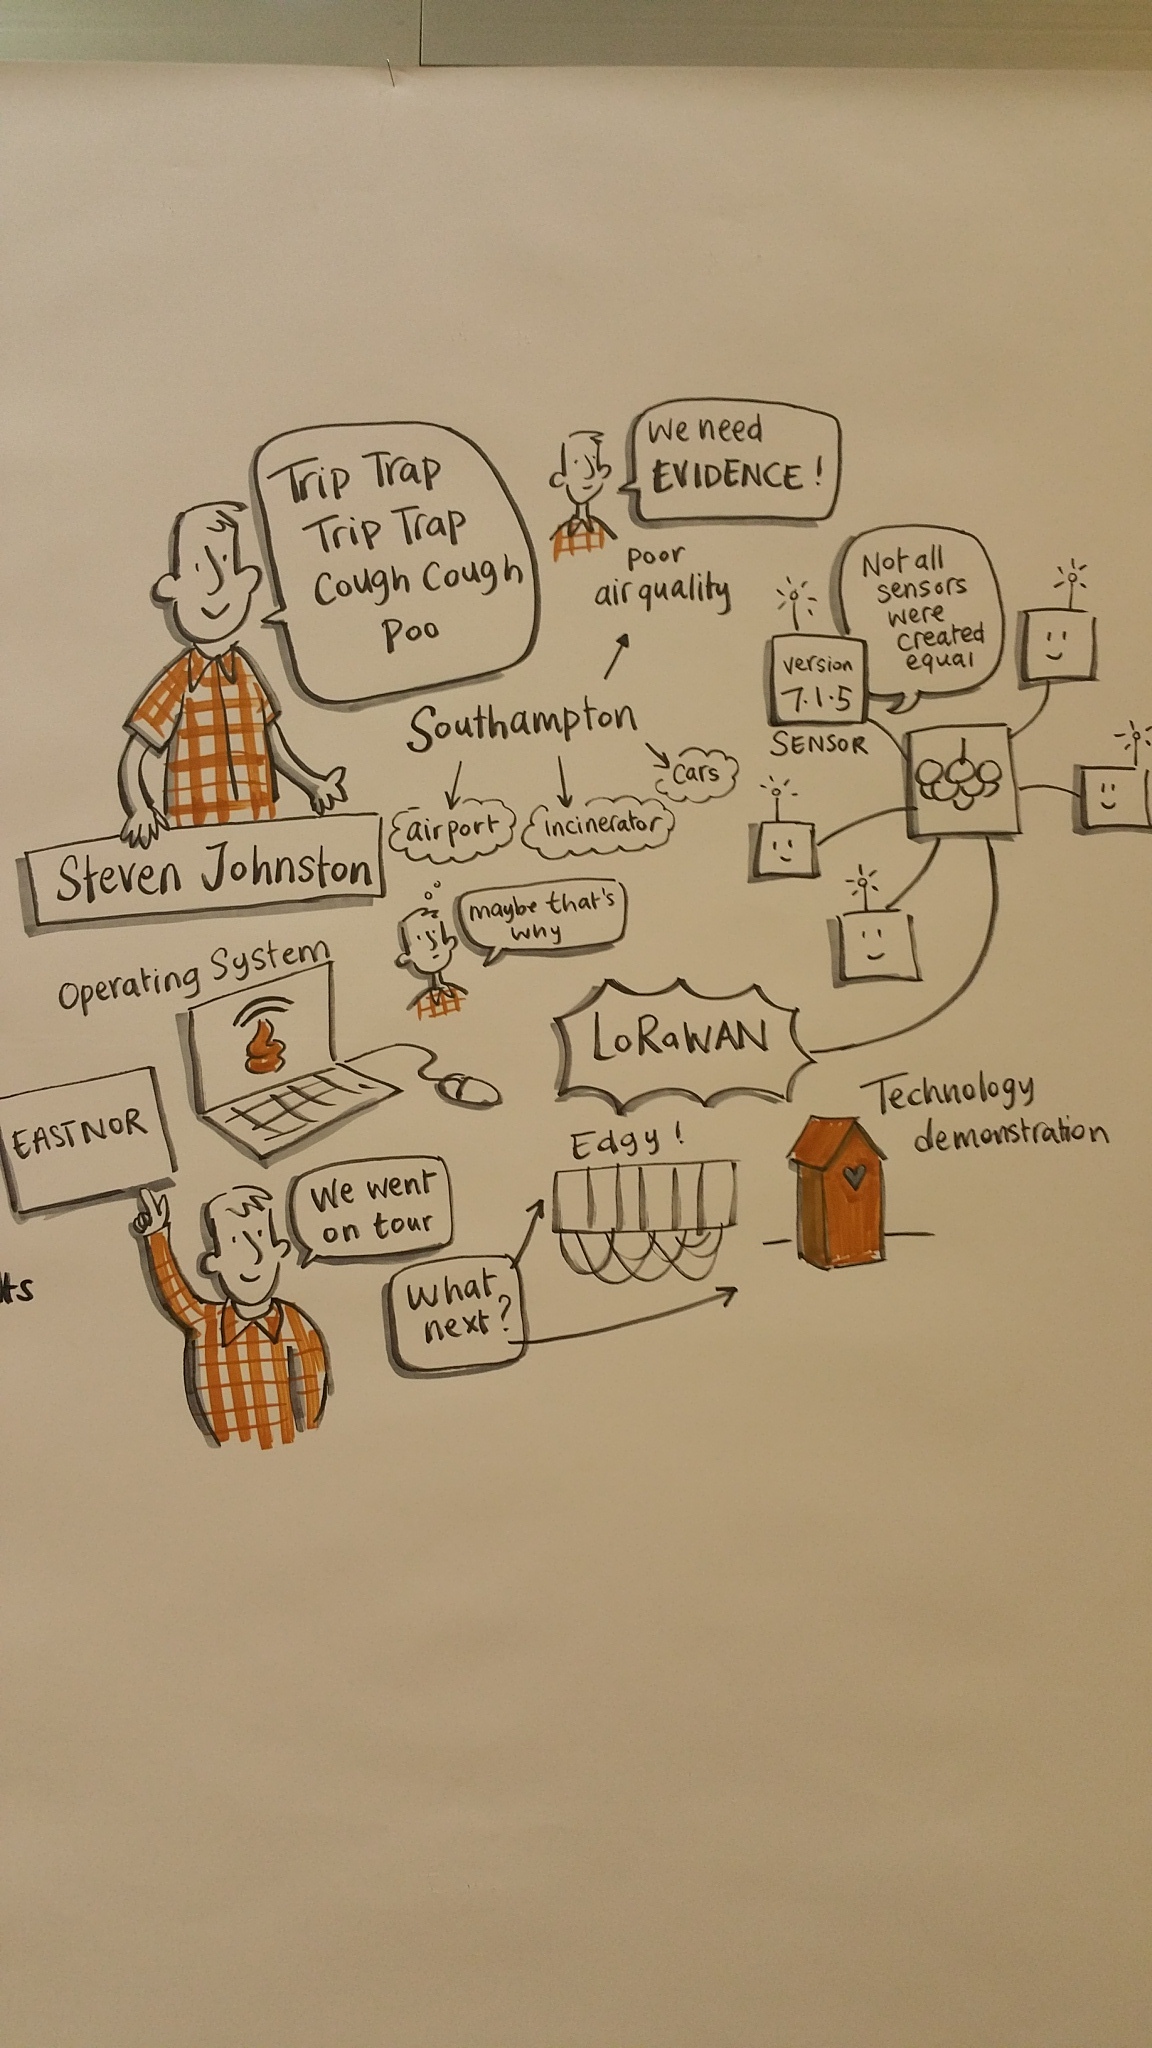 Trip Trap
Trip Trap
Cough Cough
Poo
Steven Johnston
We need
EVIDENCE!
poor
air quality
Southampton
airport
incinerator
cars
maybe that's
why
Not all
sensors
were
created
equal
version
7.1.5
SENSOR
Operating System
LoRaWAN
EASTNOR
We went
on tour
What
next?
Edgy!
Technology
demonstration